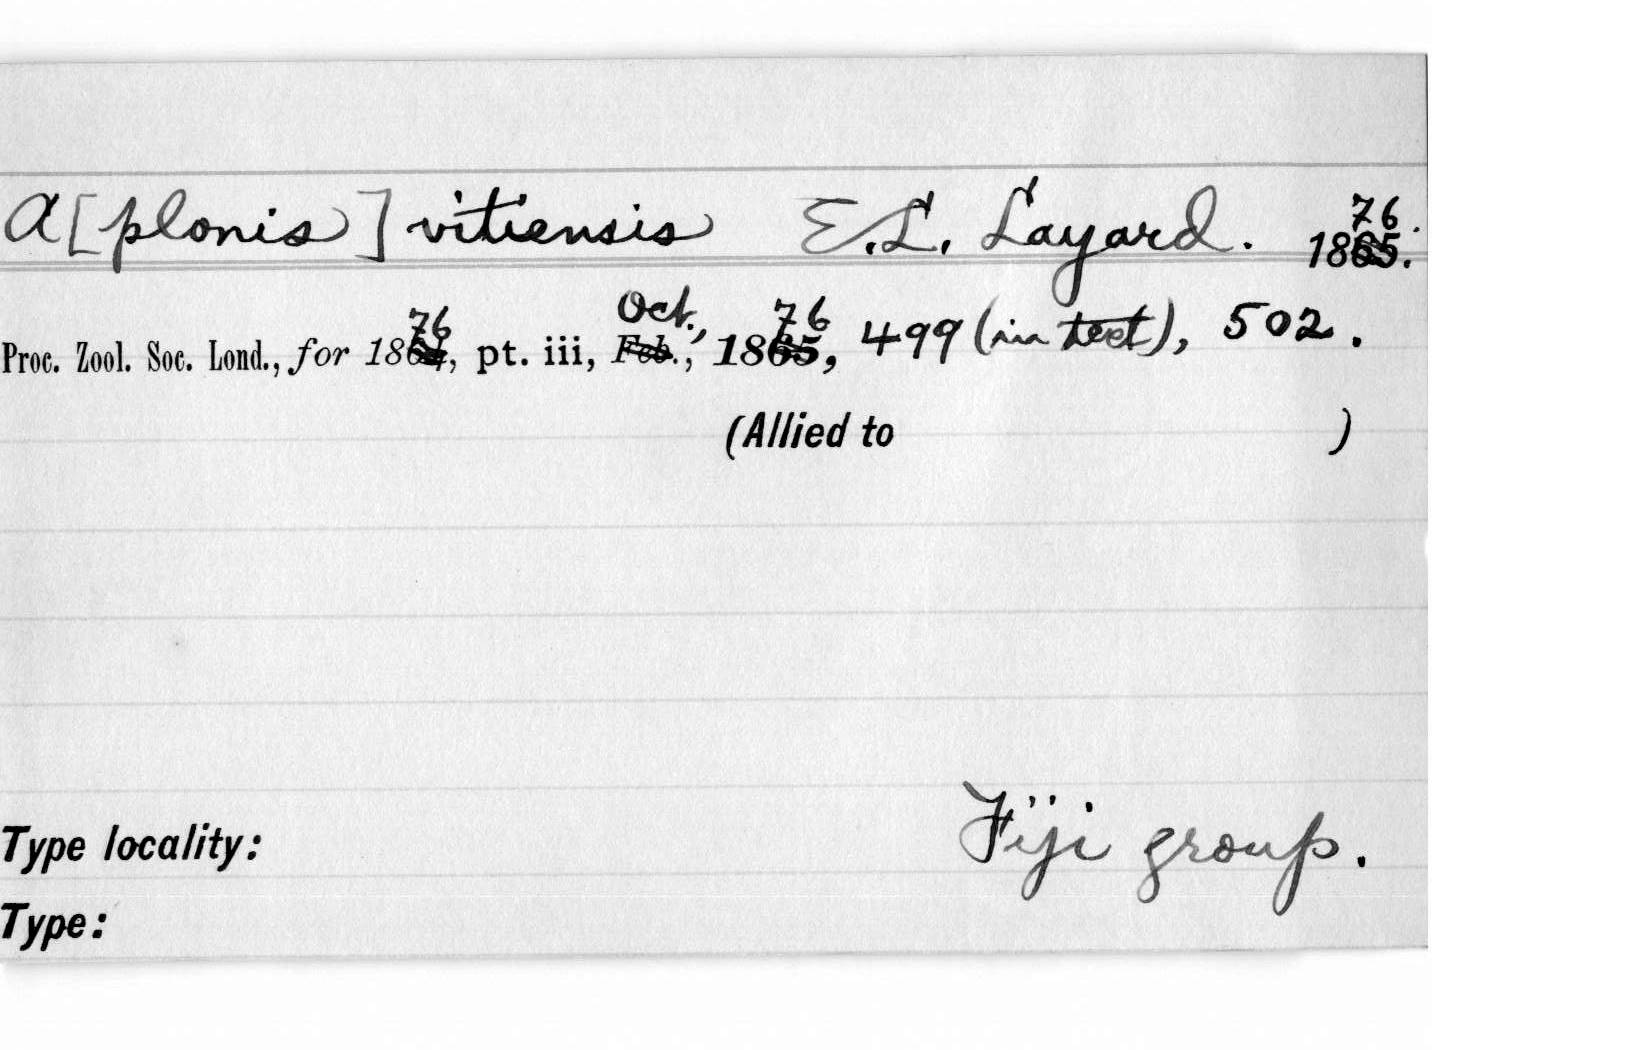 A[plonis] vitiensis E.L. Layard. 1876.
Proc. Zool. Soc. Lond., for 1876, pt. iii, Oct., 1876, 499 (in text), 502.
(Allied to )
Type locality: Fiji group.
Type: